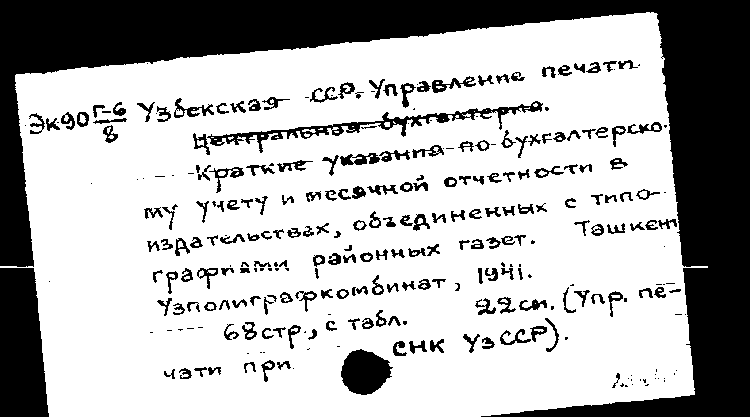 Эк90 Г-6/8 Узбекская ССР. Управление печати
Центральная бухгалтерия.
Краткие указания по бухгалтерско-
му учету и месячной отчетности в
издательствах, объединенных с типо-
графиями районных газет. Ташкент
Узполиграфкомбинат, 1941.
68 стр., с табл. 22 см. (Упр. пе-
чати при СНК УзССР).